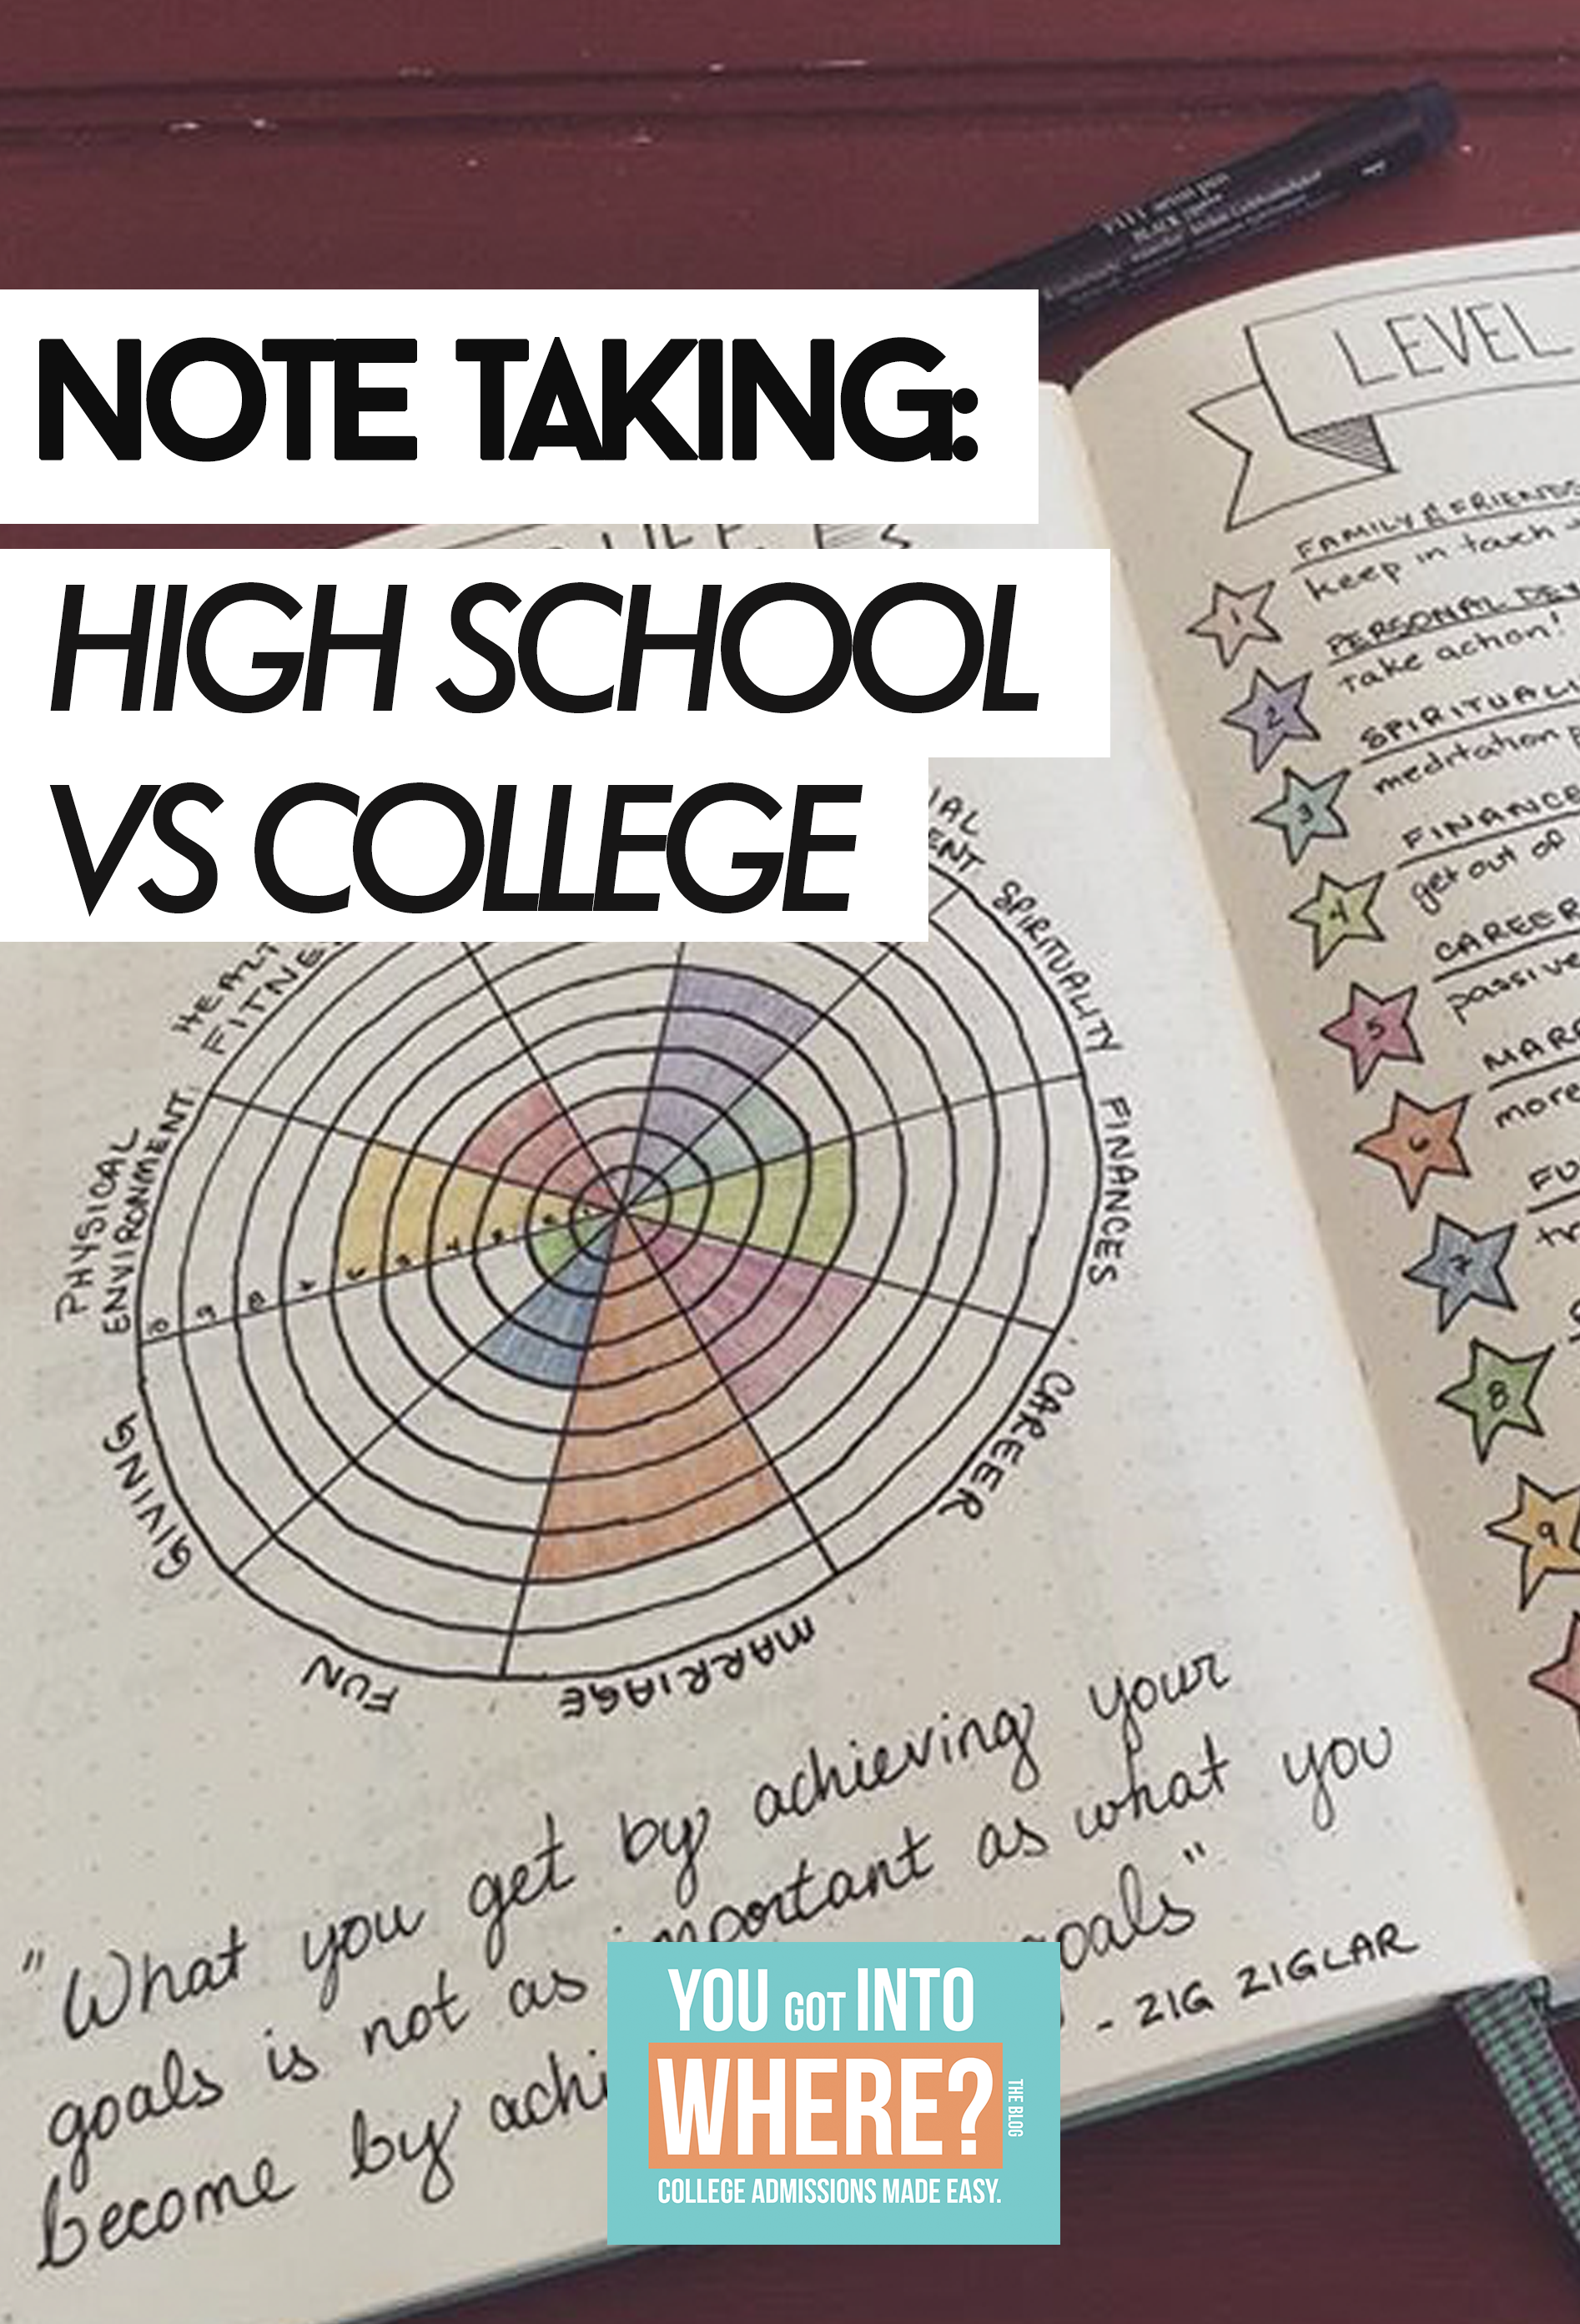 NOTE TAKING:
HIGH SCHOOL
VS COLLEGE
LIFE
LEVEL
FAMILY & FRIENDS
keep in touch
1
PERSONAL DEV
take action!
2
SPIRITUALI
meditation
3
FINANCE
get out of
4
CAREER
passive
5
MARR
more
6
FU
tr
7
8
9
IAL
ENT
SPIRITUALITY
FINANCES
CAREER
MARRIAGE
FUN
GIVING
PHYSICAL
ENVIRONMENT
HEALT
FITNE
10 9 8 7 6 5 4 3 2 1
"What you get by achieving your
goals is not as important as what you
become by achi goals"
- ZIG ZIGLAR
YOU GOT INTO
WHERE?
THE BLOG
COLLEGE ADMISSIONS MADE EASY.